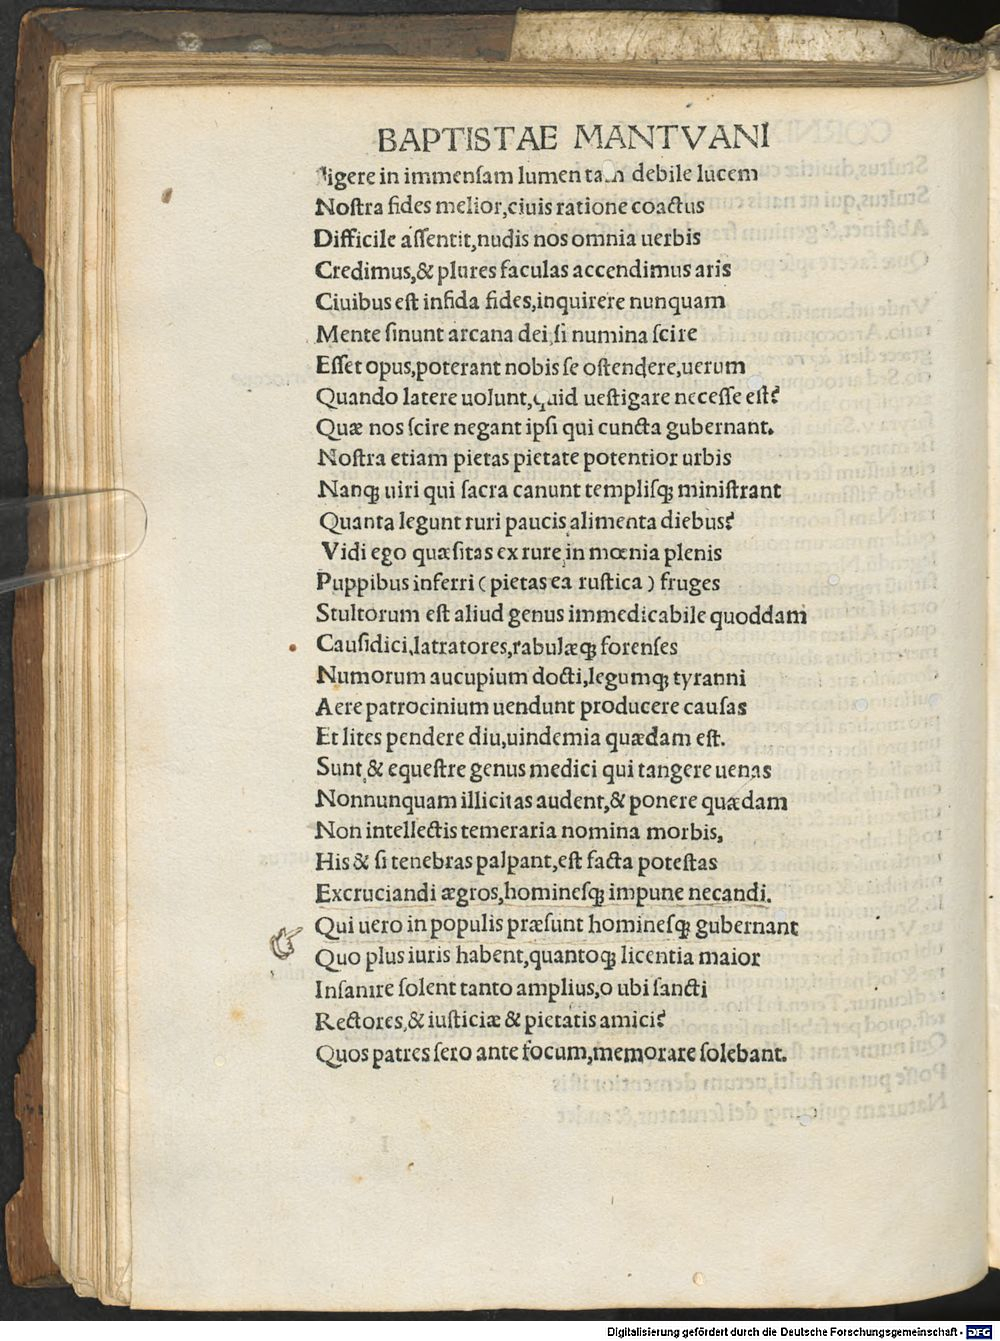 BAPTISTAE MANTVANI
figere in immensam lumen tam debile lucem
Noſtra fides melior,ciuis ratione coactus
Difficile aſſentit,nudis nos omnia uerbis
Credimus,& plures faculas accendimus aris
Ciuibus eſt infida fides,inquirere nunquam
Mente ſinunt arcana dei,ſi numina ſcire
Eſſet opus,poterant nobis ſe oſtendere,uerum
Quando latere uolunt,quid ueſtigare neceſſe eſt?
Quæ nos ſcire negant ipſi qui cuncta gubernant.
Noſtra etiam pietas pietate potentior urbis
Nanq; uiri qui ſacra canunt templiſq; miniſtrant
Quanta legunt ruri paucis alimenta diebus?
Vidi ego quæſitas ex rure in mœnia plenis
Puppibus inferri (pietas ea ruſtica) fruges
Stultorum eſt aliud genus immedicabile quoddam
Cauſidici,latratores,rabulæq; forenſes
Numorum aucupium docti,legumq; tyranni
Aere patrocinium uendunt producere cauſas
Et lites pendere diu,uindemia quædam eſt.
Sunt & equeſtre genus medici qui tangere uenas
Nonnunquam illicitas audent,& ponere quædam
Non intellectis temeraria nomina morbis,
His & ſi tenebras palpant,eſt facta poteſtas
Excruciandi ægros,homineſq; impune necandi.
Qui uero in populis præſunt homineſq; gubernant
Quo plus iuris habent,quantoq; licentia maior
Inſanire ſolent tanto amplius,o ubi ſancti
Rectores,& iuſticiæ & pietatis amici?
Quos patres ſero ante focum,memorare ſolebant.
Digitalisierung gefördert durch die Deutsche Forschungsgemeinschaft - DFG